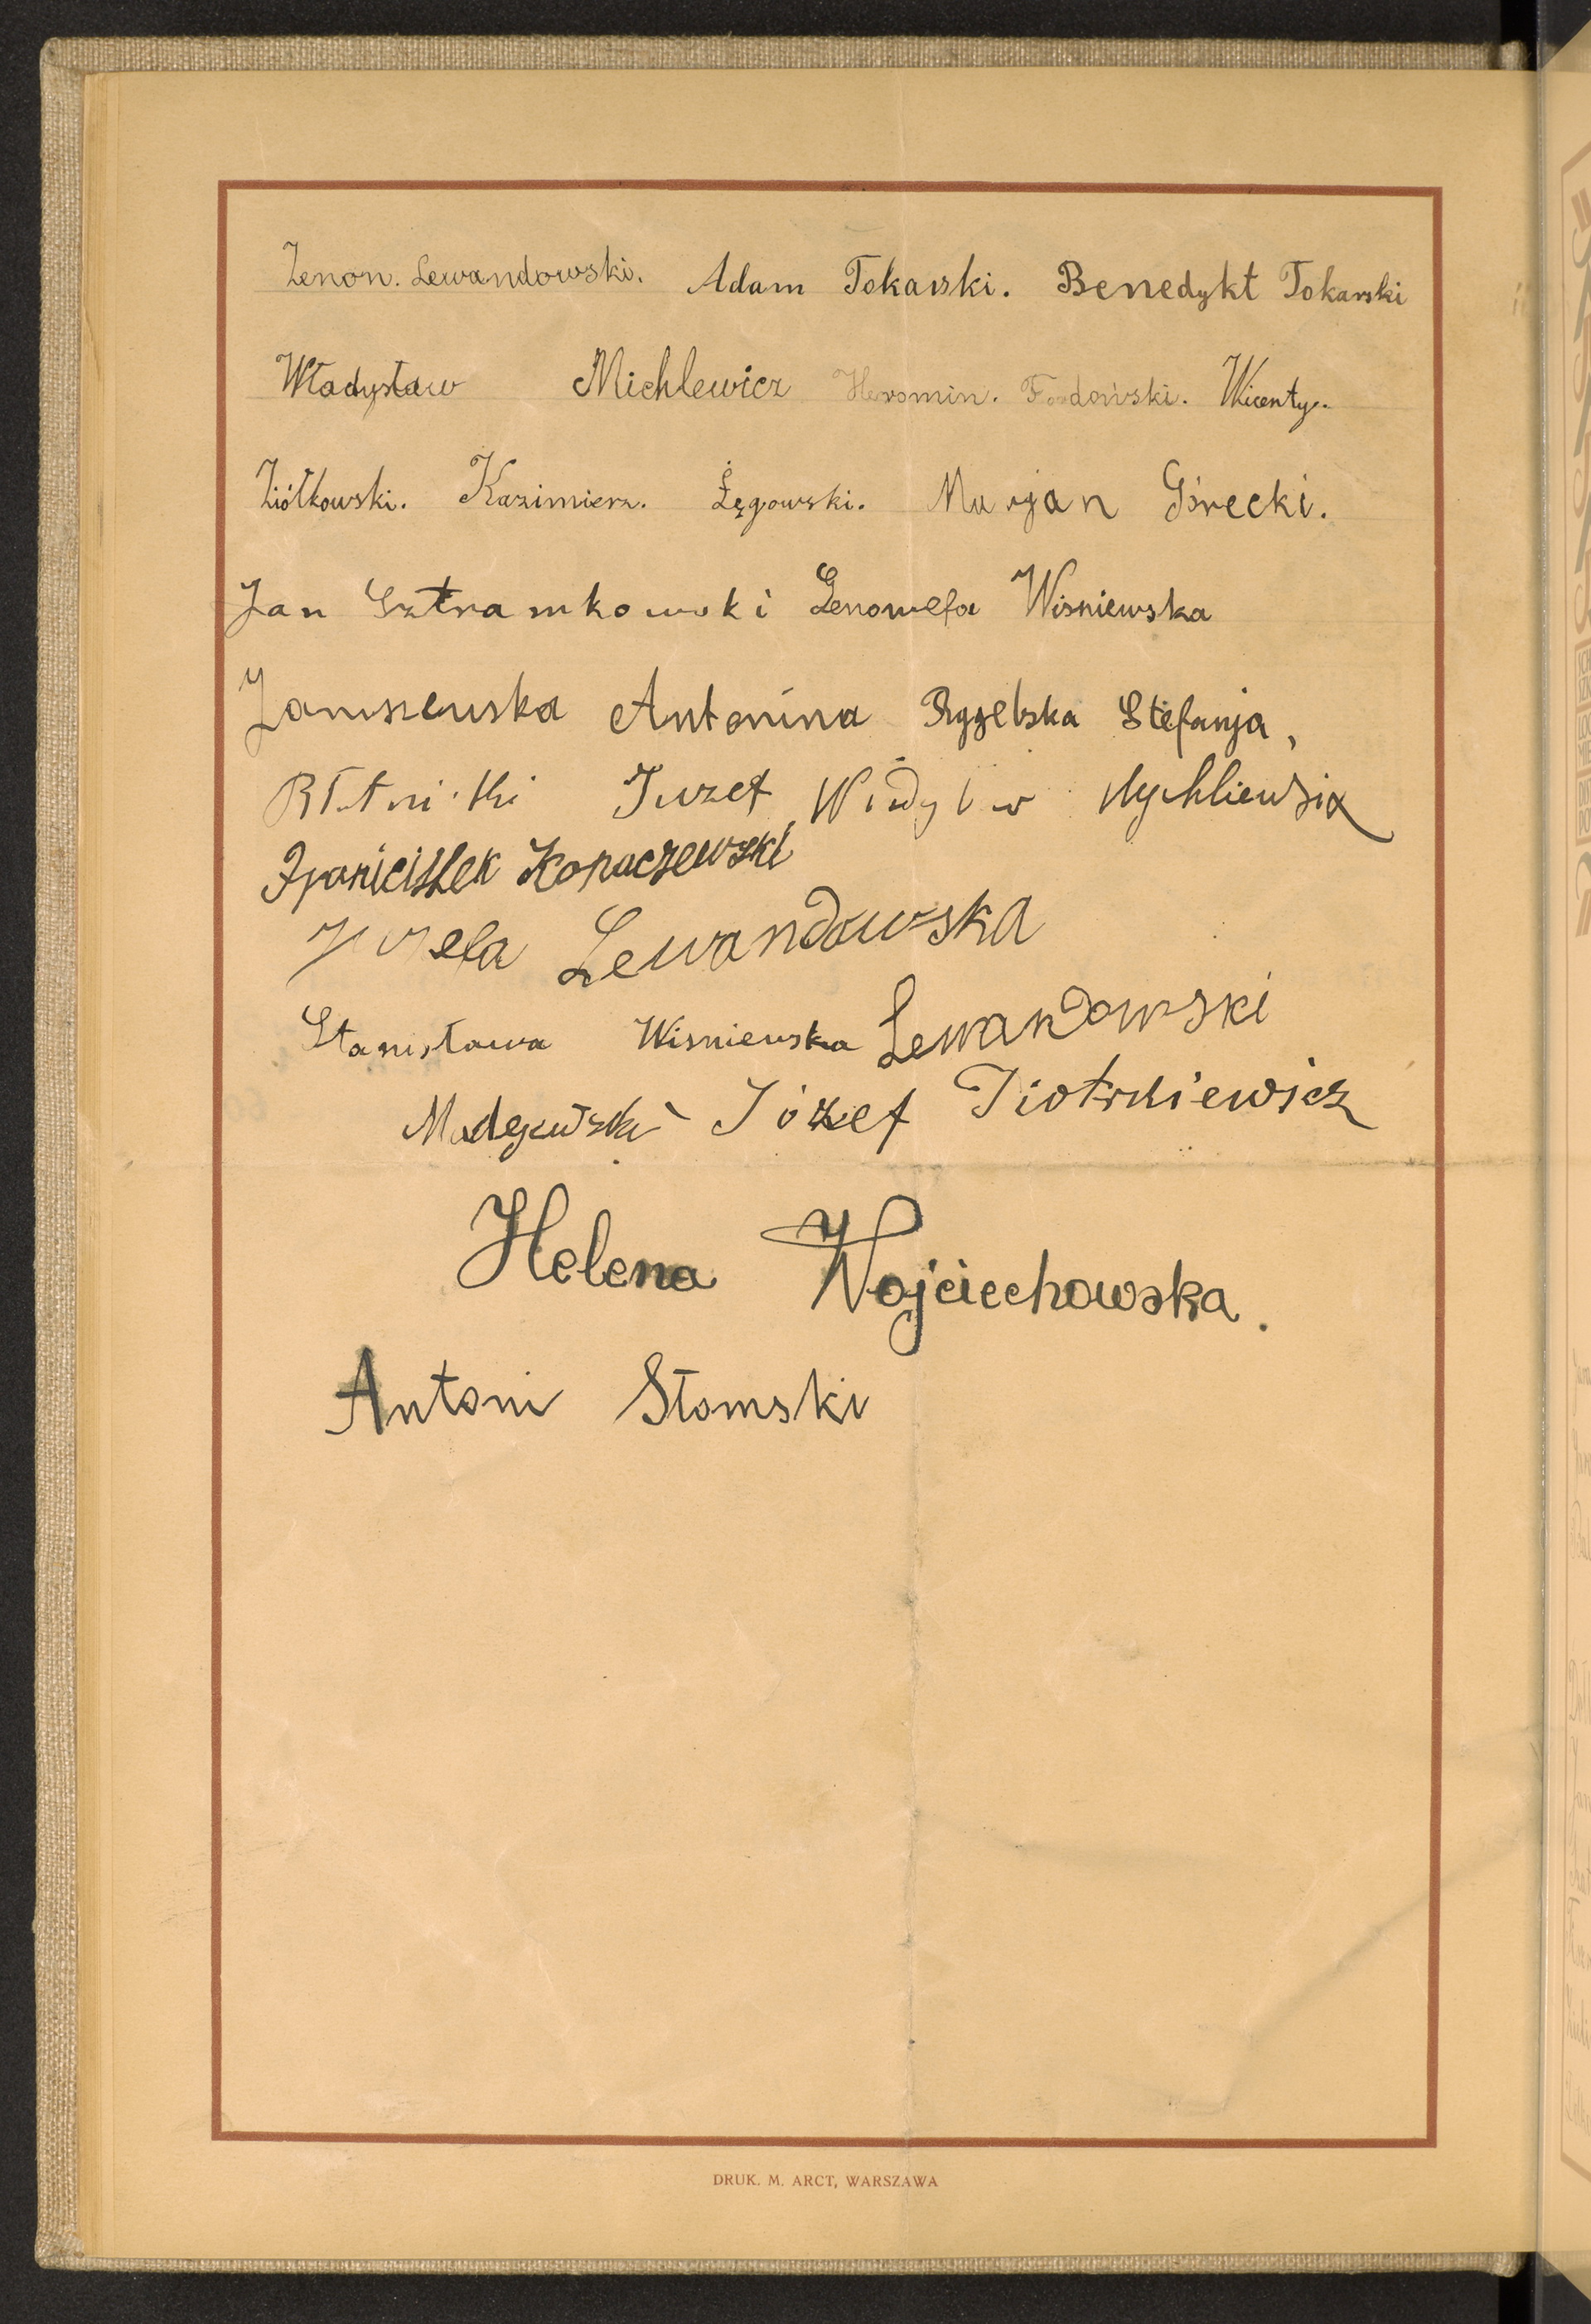 Zenon. Lewandowski. Adam Tokarski. Benedykt Tokarski
Władysław Michlewicz Wicenty.
Ziółkowski. Kazimierz. Łęgowski. Marjan Górecki.
Jan Sztramkowski Genowefa Wiśniewska
Janiszewska Antonina Stefanja,
Juzef
Franiciszek Kopaczewski
Juzefa Lewandowska
Stanisława Wisniewska Lewandowski
Józef Piotrkiewicz
Helena Wojciechowska.
Antoni Słomski
DRUK. M. ARCT, WARSZAWA